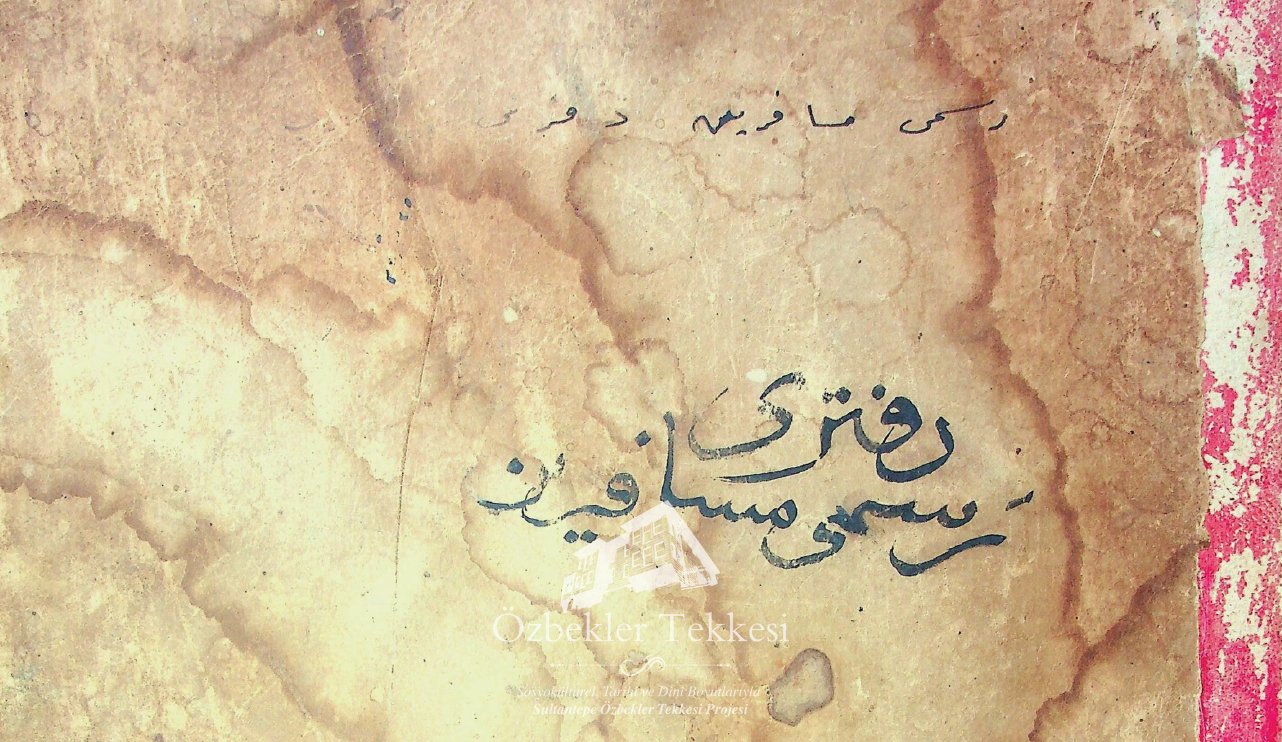 رسمى مسافرين دفترى
دفترى
رسمى مسافرين
Özbekler Tekkesi
Sosyokültürel, Tarihî ve Dinî Boyutlarıyla
Sultantepe Özbekler Tekkesi Projesi